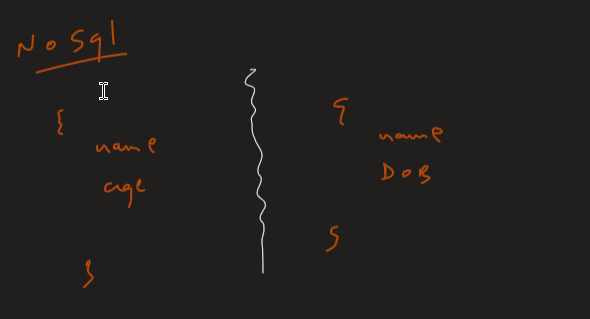 NoSql
{
name
age
}
{
name
DOB
}